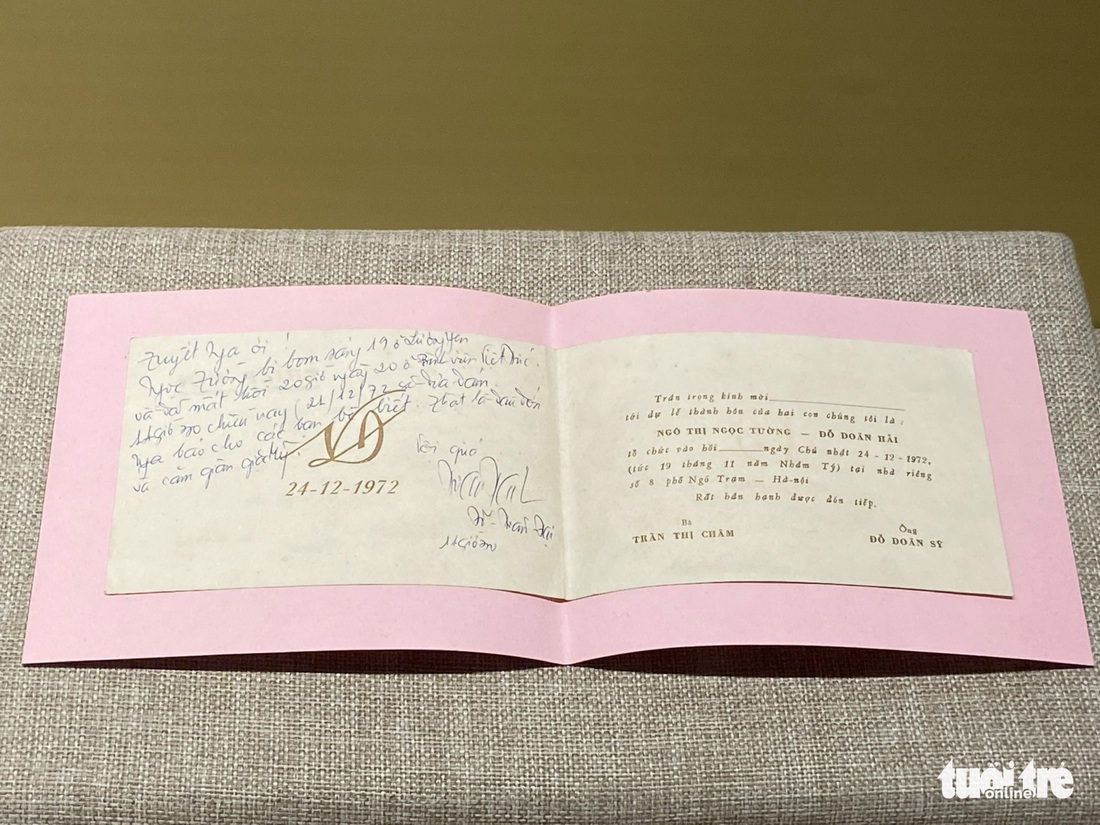 Tuyết Nga ơi!
Ngọc Tường bị bom sáng 19 ở Lương Yên
và đã mất hồi 20giờ ngày 20 ở Bệnh viện Việt Đức.
14giờ30 chiều nay (21/12/72) sẽ đưa đám.
Nga báo cho các bạn bè biết. Thật là đau đớn
và căm giận giặc Mỹ.
Vội quá
Đỗ-Doãn-Hải
11giờ30
24-12-1972
Trân trọng kính mời
tới dự lễ thành hôn của hai con chúng tôi là:
NGÔ THỊ NGỌC TƯỜNG — ĐỖ DOÃN HẢI
tổ chức vào hồi ngày Chủ nhật 24-12-1972,
(tức 19 tháng 11 năm Nhâm Tý) tại nhà riêng
số 8 phố Ngõ Trạm — Hà-nội
Rất hân hạnh được đón tiếp.
Bà
TRẦN THỊ CHÂM
Ông
ĐỖ DOÃN SỸ
tuổi trẻ
online